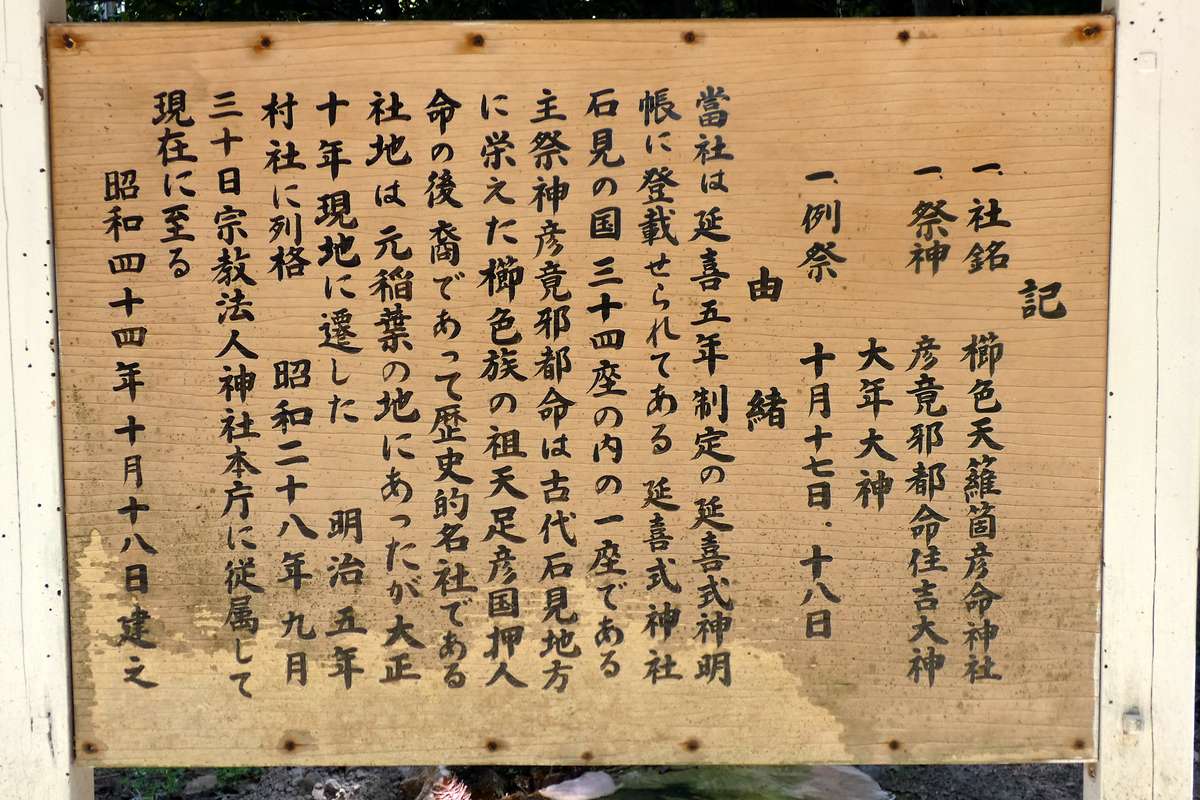 記
一、社銘 櫛色天蘿箇彦命神社
一、祭神 彦竟邪都命住吉大神
大年大神
一、例祭 十月十七日・十八日
由緒
當社は延喜五年制定の延喜式神明
帳に登載せられてある 延喜式神社
石見の国三十四座の内の一座である
主祭神彦竟邪都命は古代石見地方
に栄えた櫛色族の祖天足彦国押人
命の後裔であって歴史的名社である
社地は元稲葉の地にあったが大正
十年現地に遷した 明治五年
村社に列格 昭和二十八年九月
三十日宗教法人神社本庁に従属して
現在に至る
昭和四十四年十月十八日建之